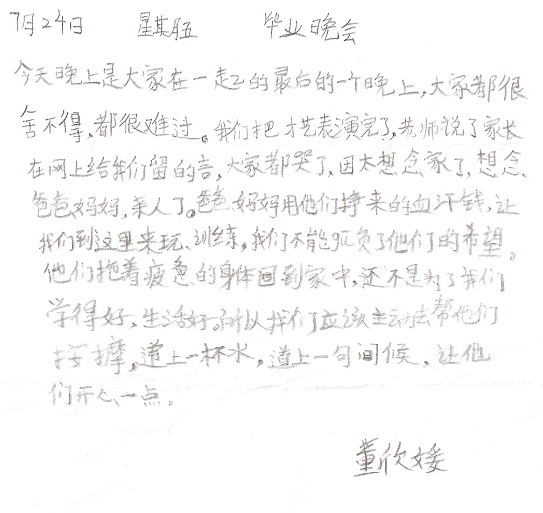 7月24日 星其五 毕业晚会
今天晚上是大家在一起的最后的一个晚上,大家都很
舍不得,都很难过。我们把才艺表演完了,老师说了家长
在网上给我们留的言,大家都哭了,因太想念家了,想念
爸爸妈妈,亲人了。爸爸妈妈用他们挣来的血汗钱,让
我们到这里来玩、训练,我们不能辜负了他们的希望。
他们拖着疲惫的身体回到家中,还不是为了我们
学得好,生活好。所以我们应该主动去帮他们
按摩,道上一杯水,道上一句间候,让他
们开心一点。
董欣媛